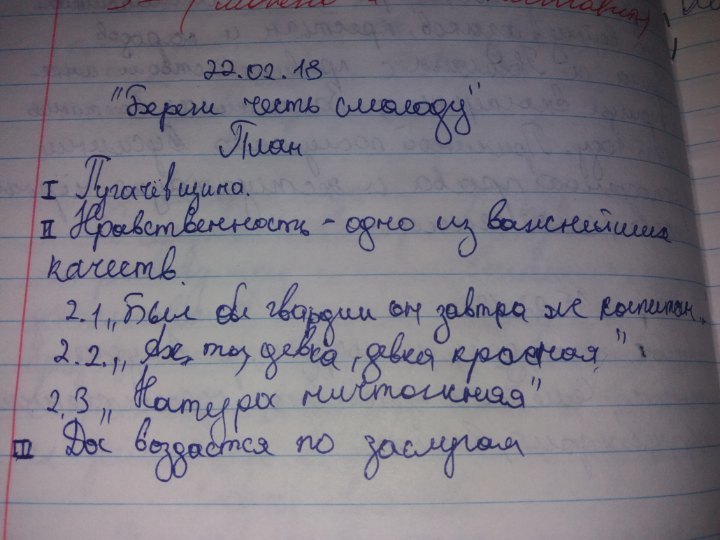 22.02.18
"Береги честь смолоду"
План
I Пугачёвщина.
II Нравственность - одно из важнейших
качеств.
2.1 „Был бы гвардии он завтра ж капитан„
2.2. „Ах, ты, девка, девка красная"
2.3 „Натура ничтожная"
III Да воздастся по заслугам